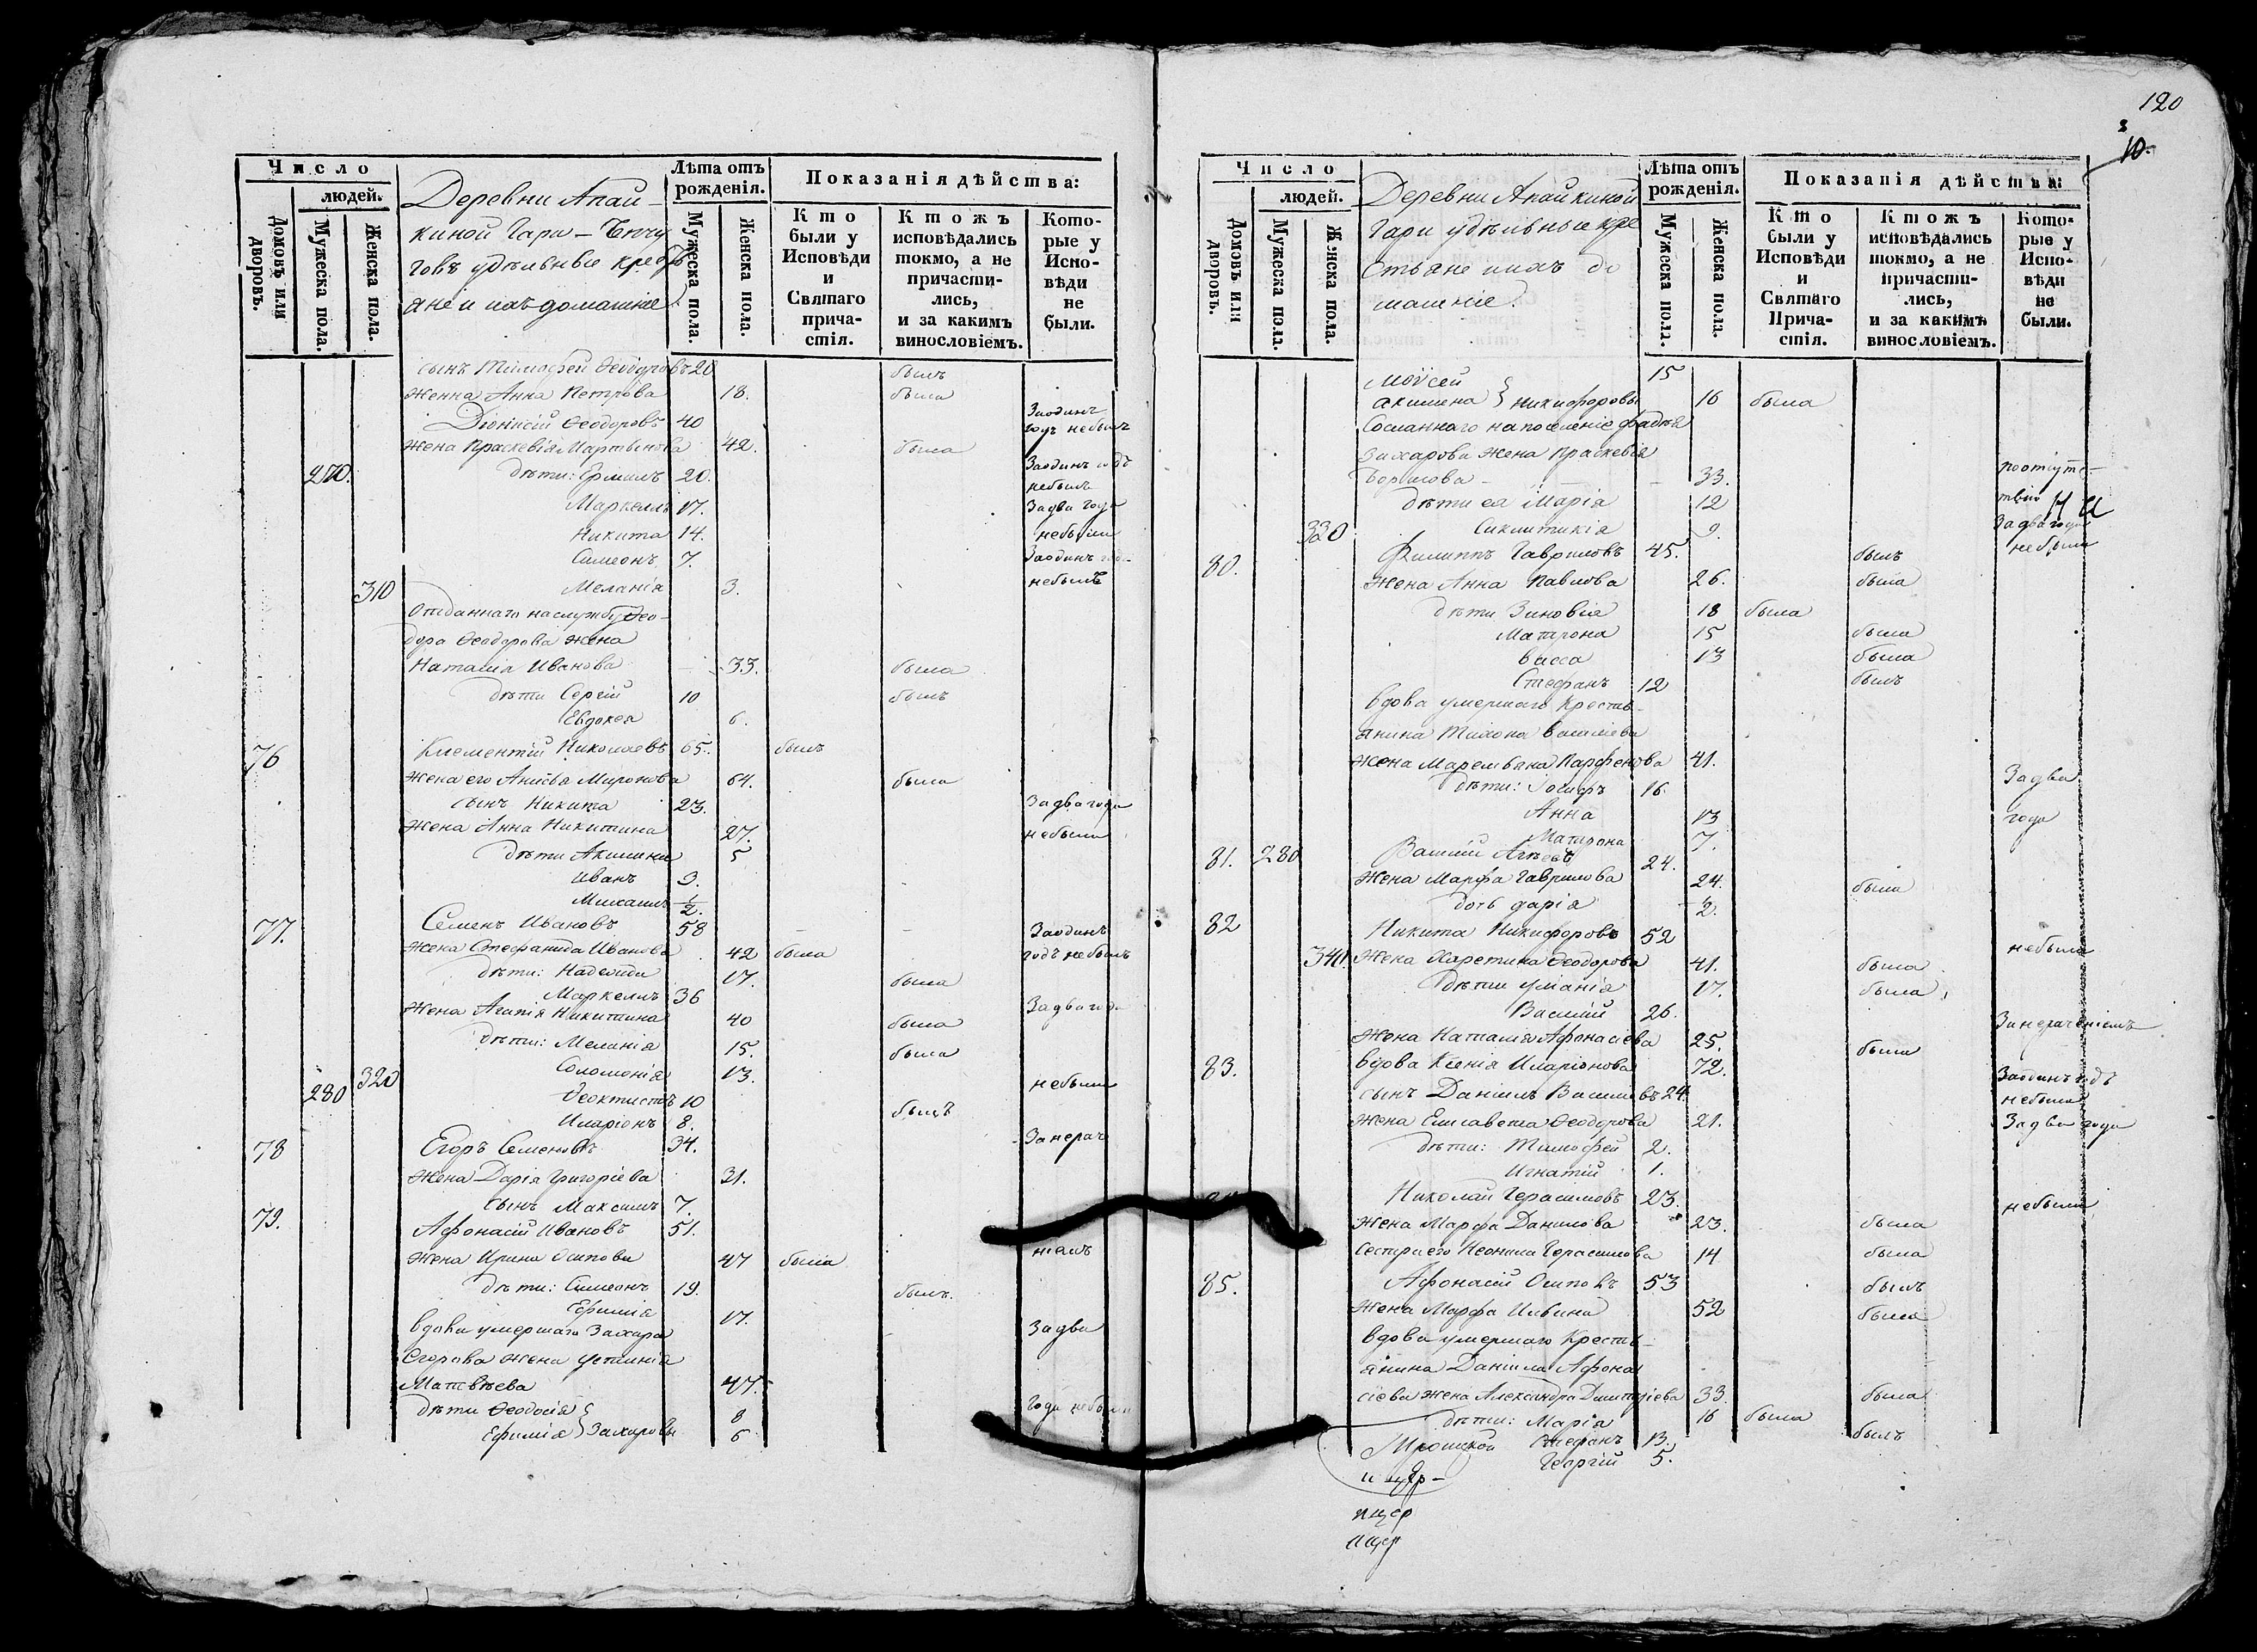 Число
людей.
Домовъ или дворовъ.
Мужеска пола.
Женска пола.
Деревни Апай-
киной Гари –
говъ удѣльные кресть
яне и ихъ домашніе
Лѣта отъ рожденія.
Мужеска пола.
Женска пола.
Показанія дѣйства:
Кто были у Исповѣди и Святаго причастія.
Ктожъ исповѣдались токмо, а не причастились, и за какимъ винословіемъ.
Которые у Исповѣди не были.
сынъ Тимофей Ѳеодоровъ 20 былъ
женна Анна Петрова 18. была
Діонисій Ѳеодоровъ 40 Заодинъ годъ небылъ
жена Праскевія Мартынова 42. была
270. дѣти: Ермилъ 20. Заодинъ годъ небылъ
Маркеллъ 17. Задва года
Никита 14. небыли
Симеонъ 7. Заодинъ годъ
310 Меланія 3. небылъ
Отданнаго наслужбу Ѳео-
дора Ѳеодорова жена
Наталія Иванова 33. была
дѣти Сергій 10 былъ
Евдокея 6.
76 Климентій Николаевъ 65. былъ
жена его Анисья Миронова 64. была
сынъ Никита 23. Задва года
жена Анна Никитина 27. небыли
дѣти Акилина 5
Иванъ 3.
Михаилъ 1/2.
77. Семенъ Ивановъ 58 Заодинъ
жена Степанида Иванова 42 была годъ небылъ
дѣти: Надежда 17. была
Маркеллъ 36 Задва года
жена Агапія Никитина 40 была
дѣти: Меланія 15. была
320 Соломонія 13. небыли
280 Ѳеоктистъ 10
Иларіонъ 8. былъ
78 Егоръ Семеновъ 34. Занерач
жена Дарія Григоріева 31.
сынъ Максимъ 7.
79. Афонасій Ивановъ 51.
жена Ирина Осипова 47 была ніемъ
дѣти: Симеонъ 19. былъ.
Ефимія 17.
вдова умершаго Захара Задва
Егорова жена Устинія
Матвѣева 47.
дѣти Ѳеодосія } 8 года небыли
Ефимія } Захаровы 6
120
10.
Число
людей.
Домовъ или дворовъ.
Мужеска пола.
Женска пола.
Деревни Апайкиной
Гари удѣльные кре
стьяне ихъ до
машніе.
Лѣта отъ рожденія.
Мужеска пола.
Женска пола.
Показанія дѣйства:
Кто были у Исповѣди и Святаго Причастія.
Ктожъ исповѣдались токмо, а не причастились, и за какимъ винословіемъ.
Которые у Исповѣди не были.
Моѵсей 15
Акилина } Никифоровы 16 была
Сосланнаго напоселеніе Фадѣя
Захарова жена Праскевія
Борисова 33. поотсутс-
дѣти ея Марія 12 твію
330 Сиклитикія 9. Задва года
80. Филиппъ Гавриловъ 45. былъ небыли
жена Анна Павлова 26. была
дѣти Зиновія 18 была
Матрона 15 была
Васса 13 была
Стефанъ 12 былъ
вдова умершаго Кресть-
янина Тихона Васильева
жена Маремьяна Парфенова 41.
дѣти: Іосифъ 16. Задва
Анна 13 года
Матрона 7.
81. 280 Василій Агѣевъ 24.
жена Марфа Гаврилова 24. была
дочь Дарія 1/2.
82 Никита Никифоровъ 52 небыли
340. жена Харетина Ѳеодорова 41. была
дѣти Уліанія 17. была
Василій 26. Занераченіемъ
жена Наталія Афонасіева 25. была
83. вдова Ксенія Иларіонова 72. Заодинъ годъ
сынъ Даніилъ Васильевъ 24. небыла
жена Елисавета Ѳеодорова 21. Задва года
дѣти: Тимофей 2.
Игнатій 1.
Николай Герасимовъ 23. небыли
жена Марфа Данилова 23. была
сестра его Неонила Герасимова 14 была
85. Афонасій Осиповъ 53 былъ
жена Марфа Ильина 52 была
вдова умершаго Кресть-
янина Даніила Афона
сіева жена Александра Димитріева 33. была
дѣти: Марія 16 была
Стефанъ 13. былъ
Георгій 5.